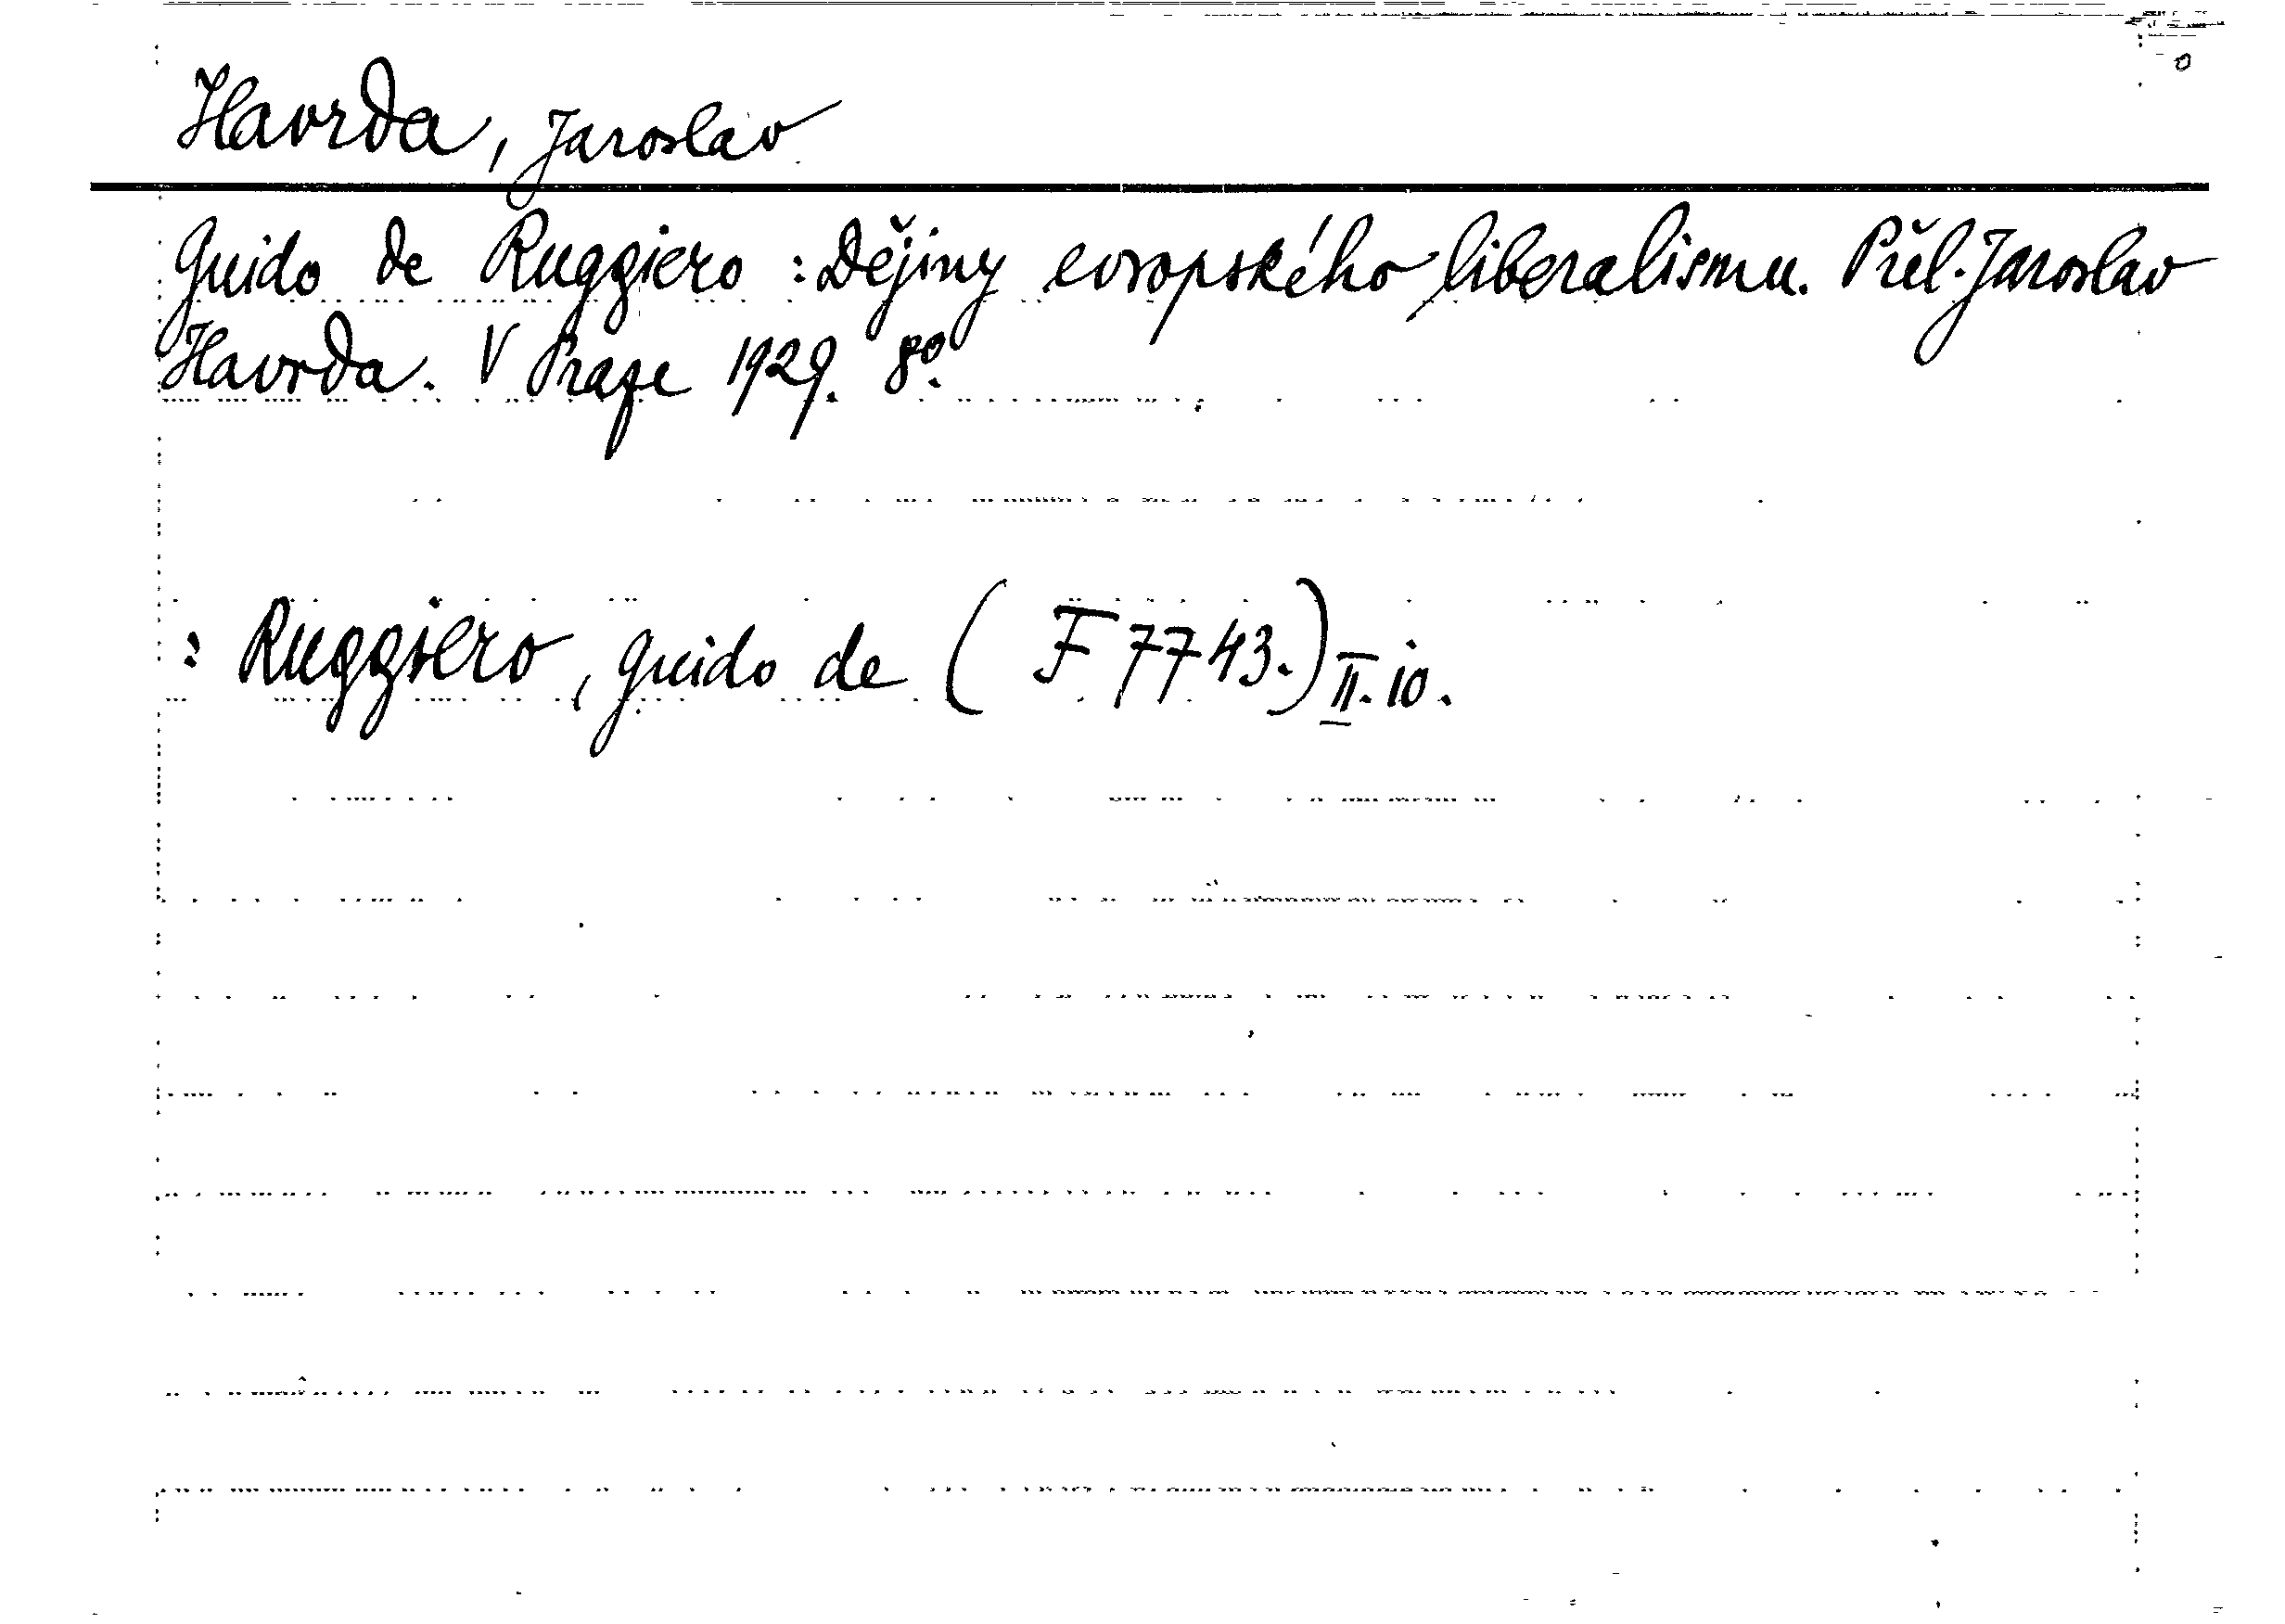 Havrda, Jaroslav
Guido de Ruggiero : Dějiny evropského liberalismu. Přel. Jaroslav
Havrda. V Praze 1929. 8º.
: Ruggiero, Guido de ( F 7743.) II. 10.